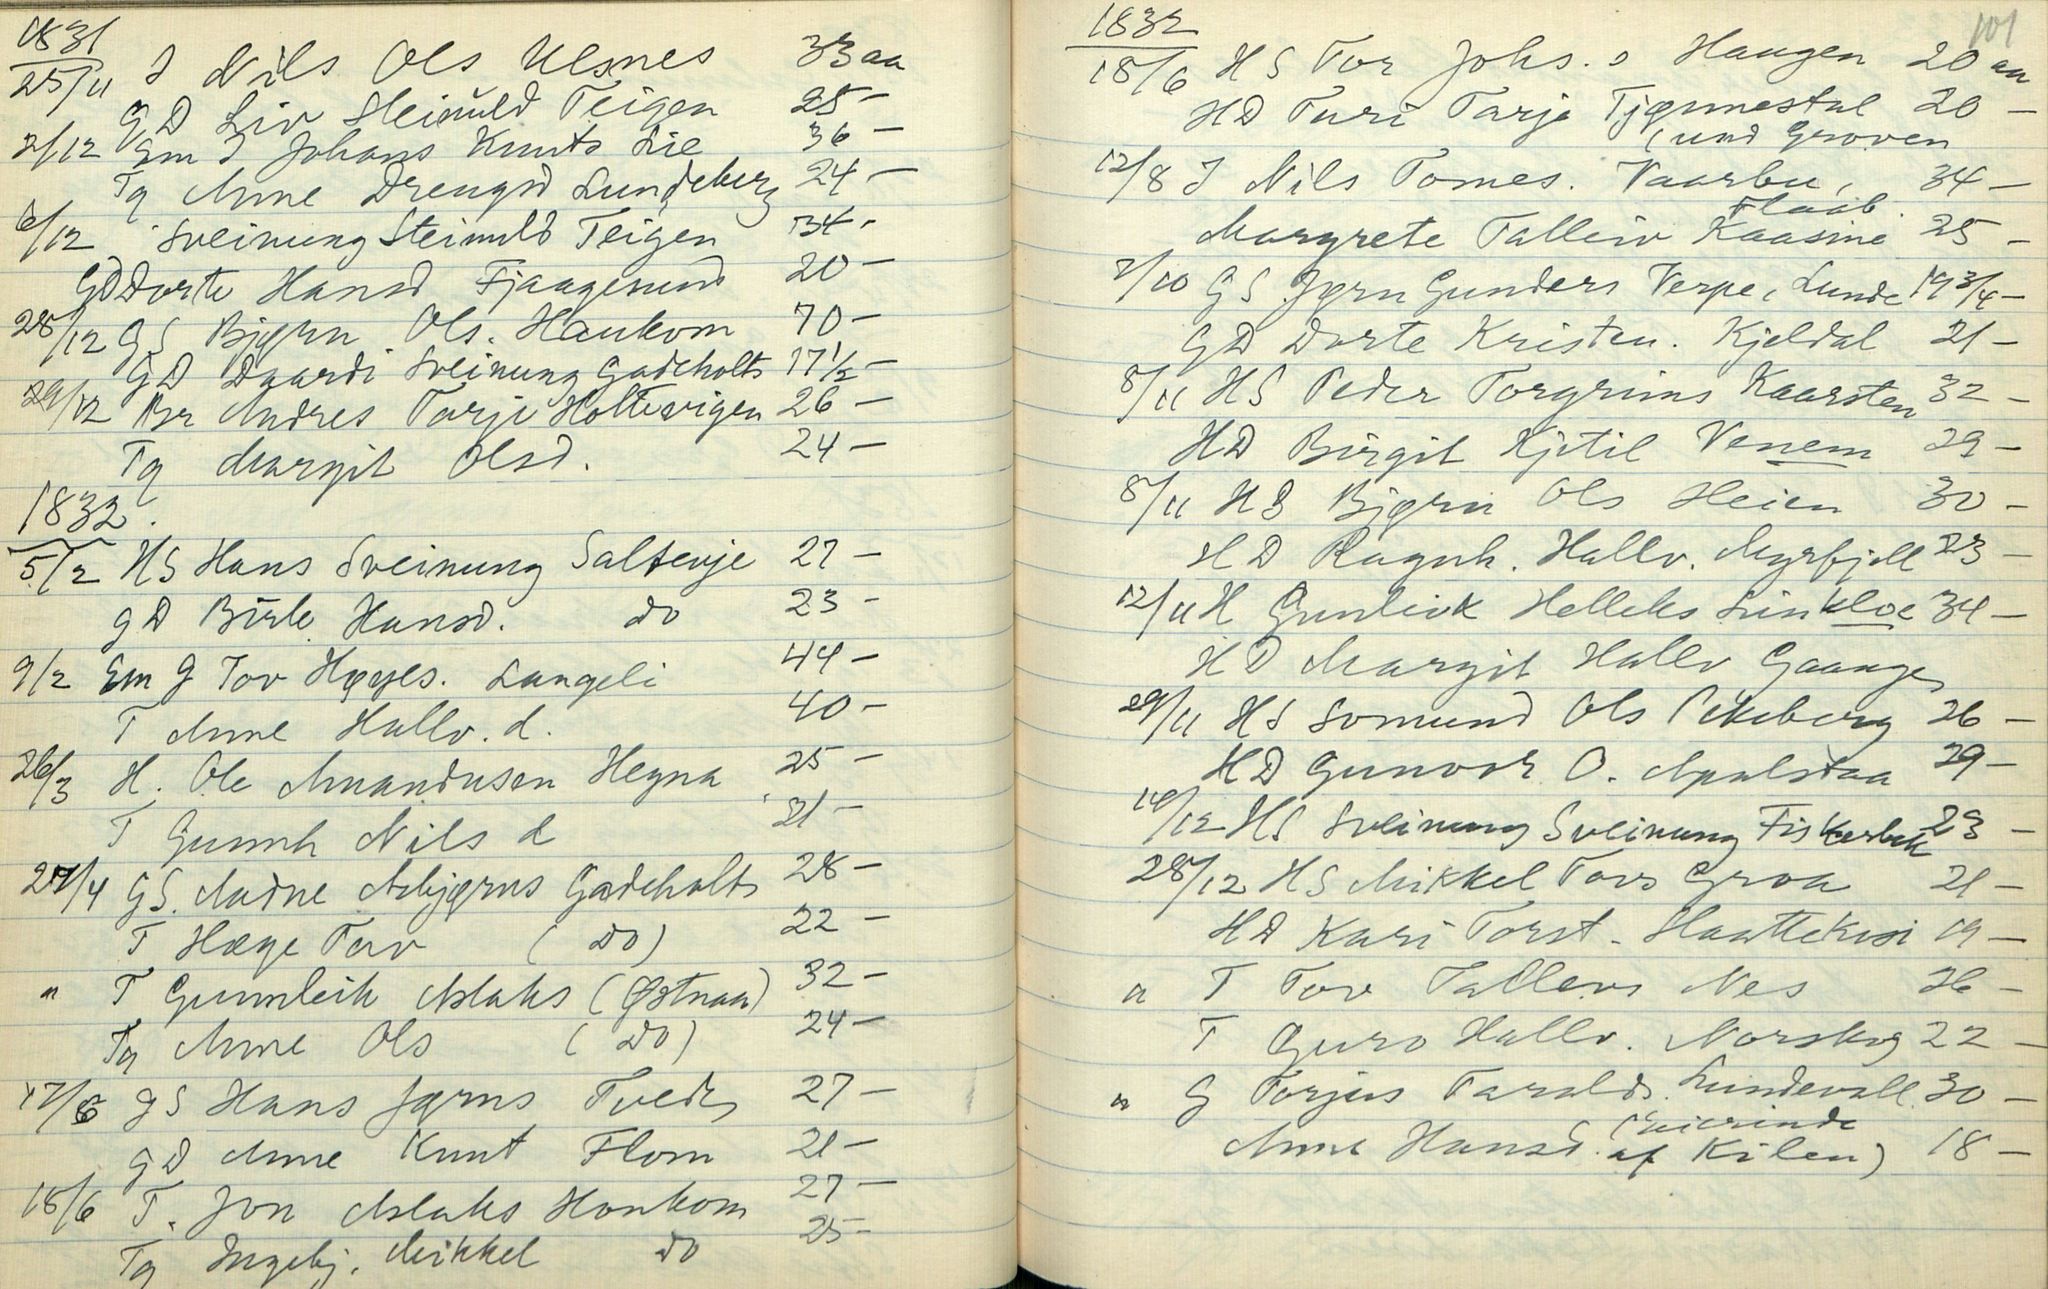 1831
25/11 I Nils Ols Ulsnes 33 aa
GD Liv Steinuld Teigen 25 -
2/12 Em I Johans Knuts Lie 36 -
Tg Anne Drengsd Lundeberg 24 -
6/12 Sveinung Steinuld Teigen 34 -
GD Dorte Hansd Fjaagesund 20 -
28/12 GS Bjørn Ols. Haukom 70 -
GD Daardi Sveinung Gadeholt 17 1/2 -
29/12 Br Andres Tarje Holtevigen 26 -
Tg Margit Olsd. 24 -
1832.
5/2 HS Hans Sveinung Saltevje 27 -
GD Birte Hansd. do 23 -
9/2 Em G Tov Høljes. Langeli 44 -
T Anne Hallv. d. 40 -
26/3 H. Ole Amandusen Hegna 25 -
T Gunnh Nils d 21 -
27/4 GS. Aadne Asbjørns Gadeholt 28 -
T Hæge Tov (do) 22 -
" T Gunnleik Aslaks (Østnaa) 32 -
Tg Anne Ols (do) 24 -
17/6 GS Hans Jørns Tvedt 27 -
GD Anne Knut Flom 21 -
18/6 T. Jon Aslaks Haukom 27 -
Tg Ingebj. Mikkel do 25 -
101
1832
18/6 HS Tor Johs. s Haugen 20 aa
HD Turi Tarje Tjønnestul 20 -
(und Groven
12/8 I Nils Tomes. Vaarbu, 34 -
Flaab.
Margrete Talleiv Kaasine 25 -
7/10 GS Jørn Gunders Verpe, Lunde 19 3/4 -
GD Dorte Kristen. Kjeldal 21 -
8/11 HS Peder Torgrims Kaarsten 32 -
HD Birgit Kjetil Venem 29 -
8/11 HS Bjørn Ols Heien 30 -
HD Ragnh. Hallv. Myrfjell 23 -
12/11 H Gunleik Helleks Linkloe 34 -
HD Margit Hallv Gaange
29/11 HS Somund Ols Pekeberg 26 -
HD Gunvor O. Apalstaa 29 -
10/12 HS Sveinung Sveinung Fiskerbek 23 -
28/12 HS Mikkel Tovs Groa 21 -
HD Kari Torst. Haattekosi 19 -
" T Tov Tallevs Nes 26 -
T Guro Hallv. Norskog 22 -
" G Torjus Taralds. Lundevall. 30 -
(veirinde
Anne Hansd. af Kilen) 18 -